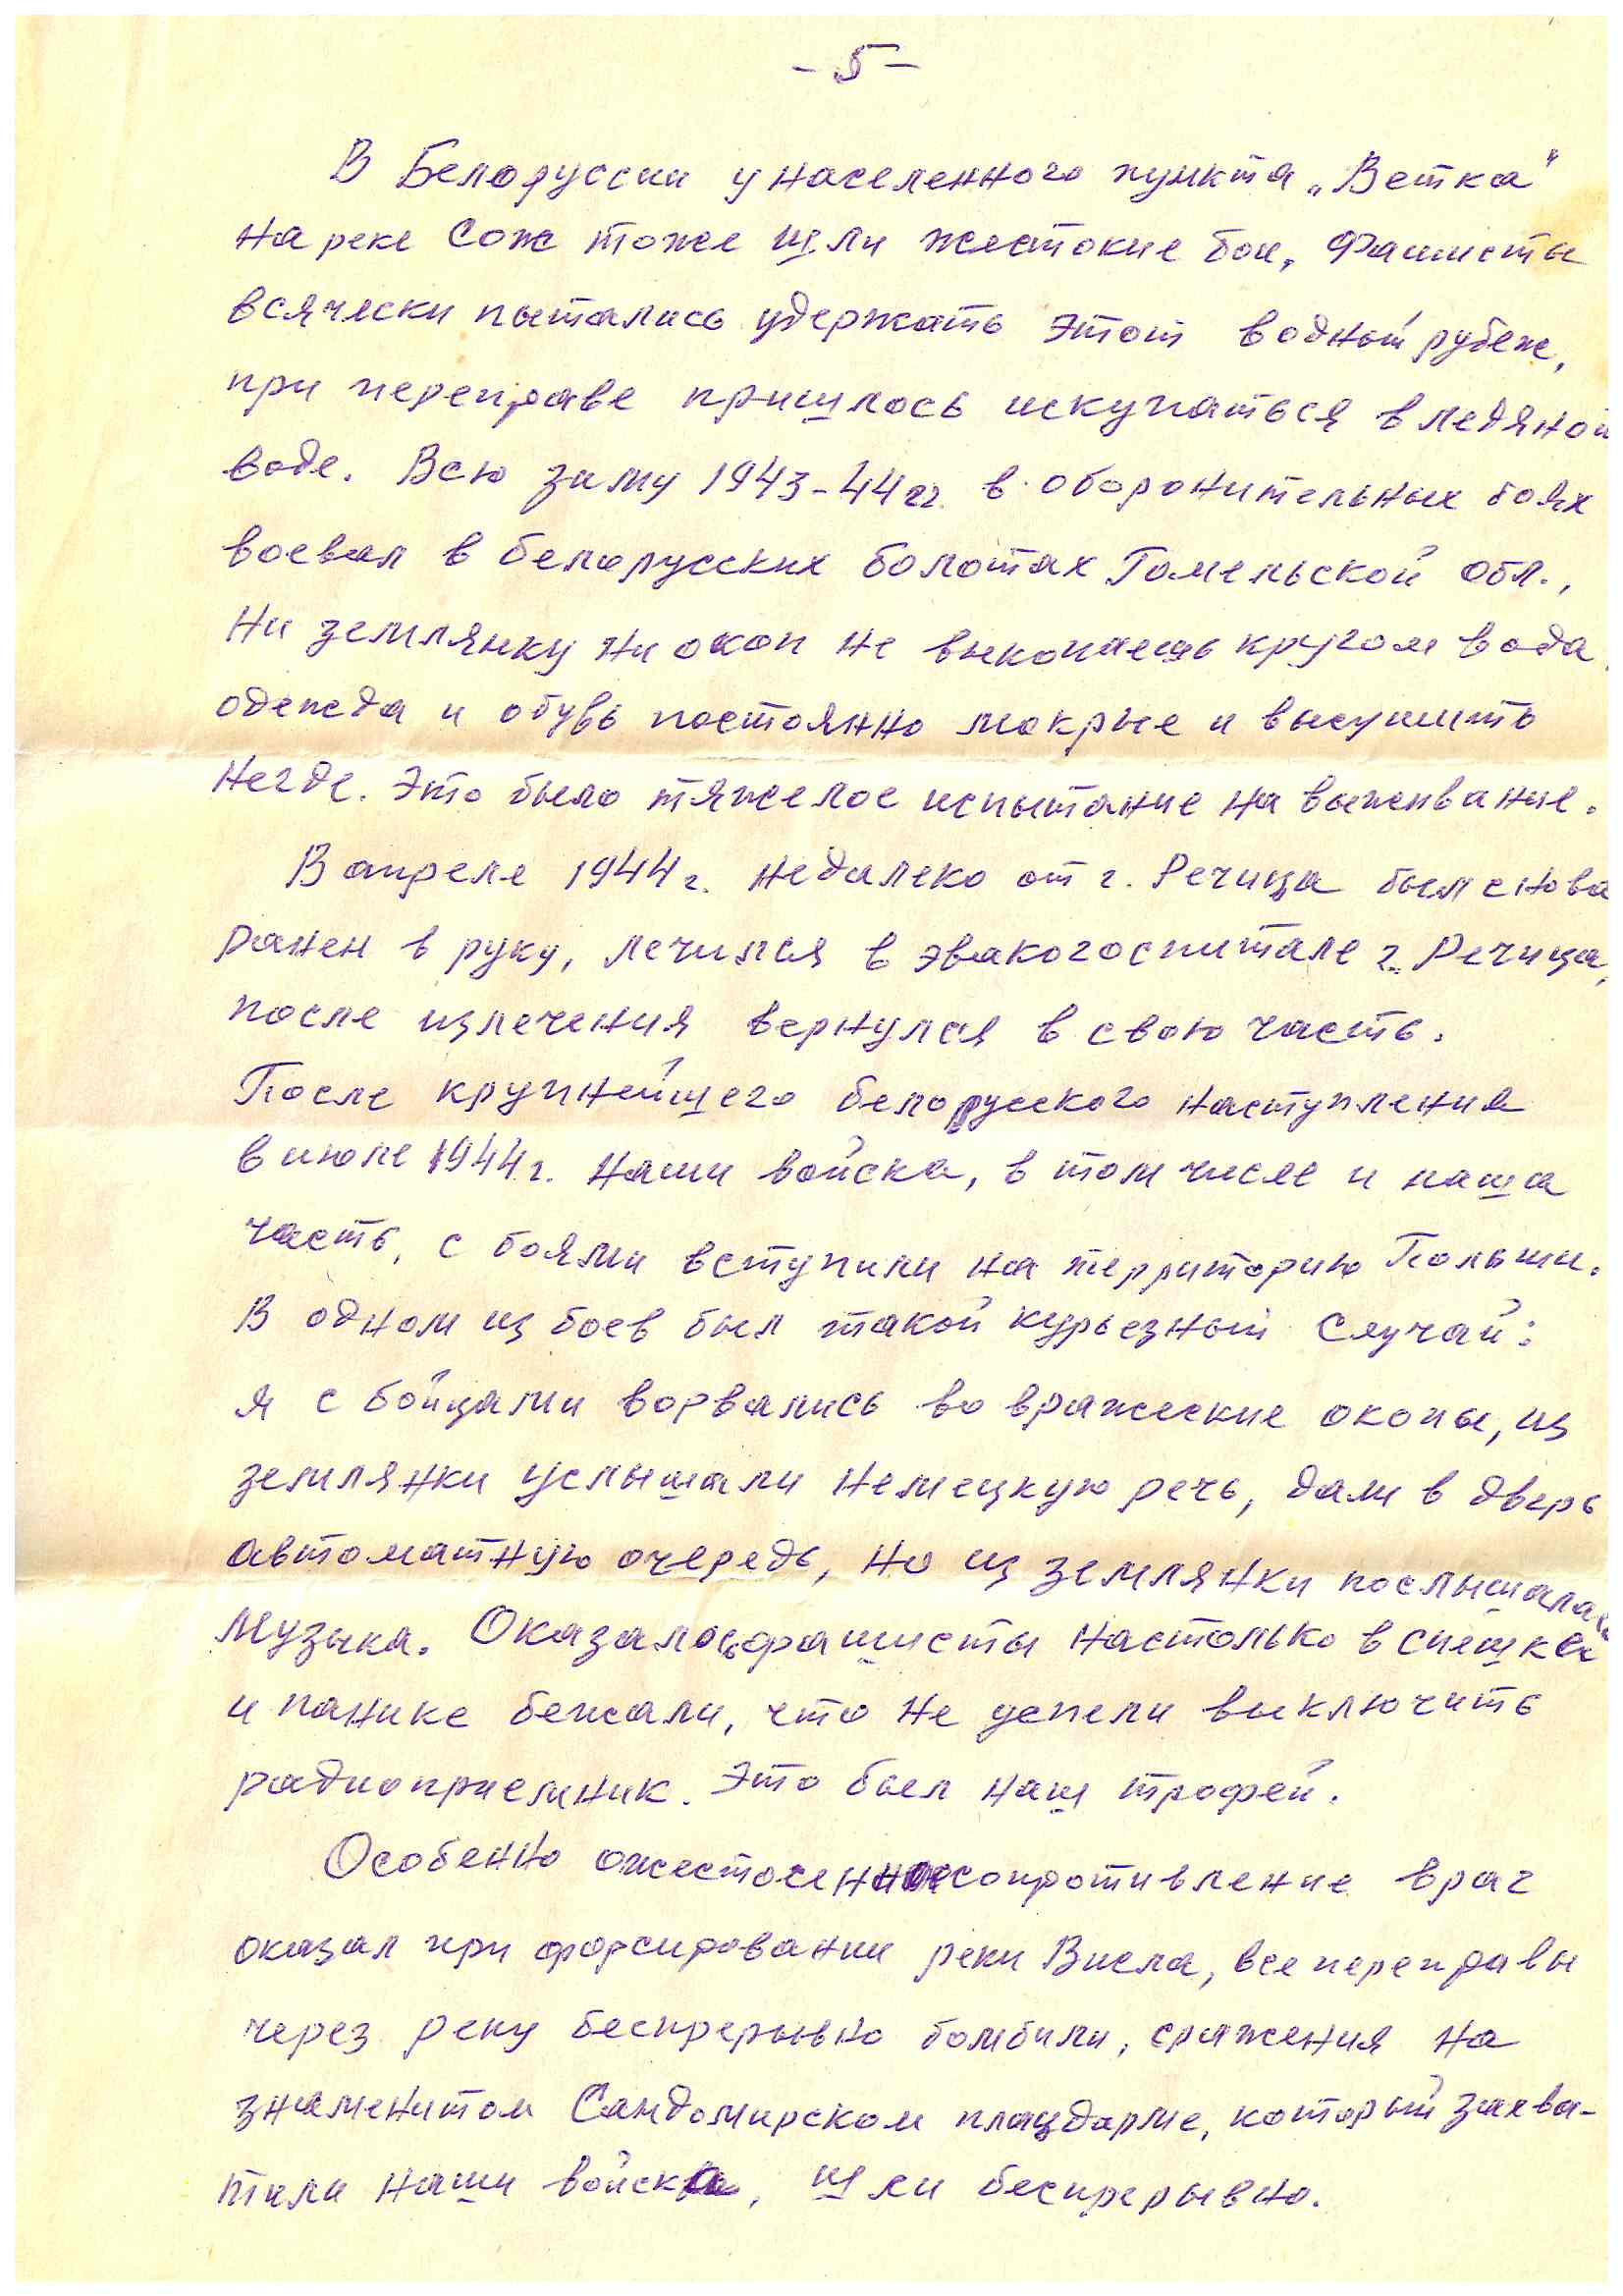 - 5 -
В Белоруссии у населенного пункта „Ветка"
на реке Сож тоже шли жестокие бои, Фашисты
всячески пытались удержать этот водный рубеж,
при переправе пришлось искупаться в ледяной
воде. Всю зиму 1943-44гг. в оборонительных боях
воевал в белорусских болотах Гомельской обл.,
Ни землянку ни окоп не выкопаешь кругом вода,
одежда и обувь постоянно мокрые и высушить
негде. Это было тяжелое испытание на выживание.
В апреле 1944г. недалеко от г. Речица был снова
ранен в руку, лечился в эвакогоспитале г. Речица,
после излечения вернулся в свою часть.
После крупнейшего белорусского наступления
в июле 1944г. наши войска, в том числе и наша
часть, с боями вступили на территорию Польши.
В одном из боев был такой курьезный случай:
я с бойцами ворвались во вражеские окопы, из
землянки услышали немецкую речь, дали в дверь
автоматную очередь, но из землянки послышалась
музыка. Оказалось, фашисты настолько в спешке
и панике бежали, что не успели выключить
радиоприемник. Это был наш трофей.
Особенно ожесточенное сопротивление враг
оказал при форсировании реки Висла, все переправы
через реку беспрерывно бомбили, сражения на
знаменитом Сандомирском плацдарме, который захва-
тили наши войска, шли беспрерывно.